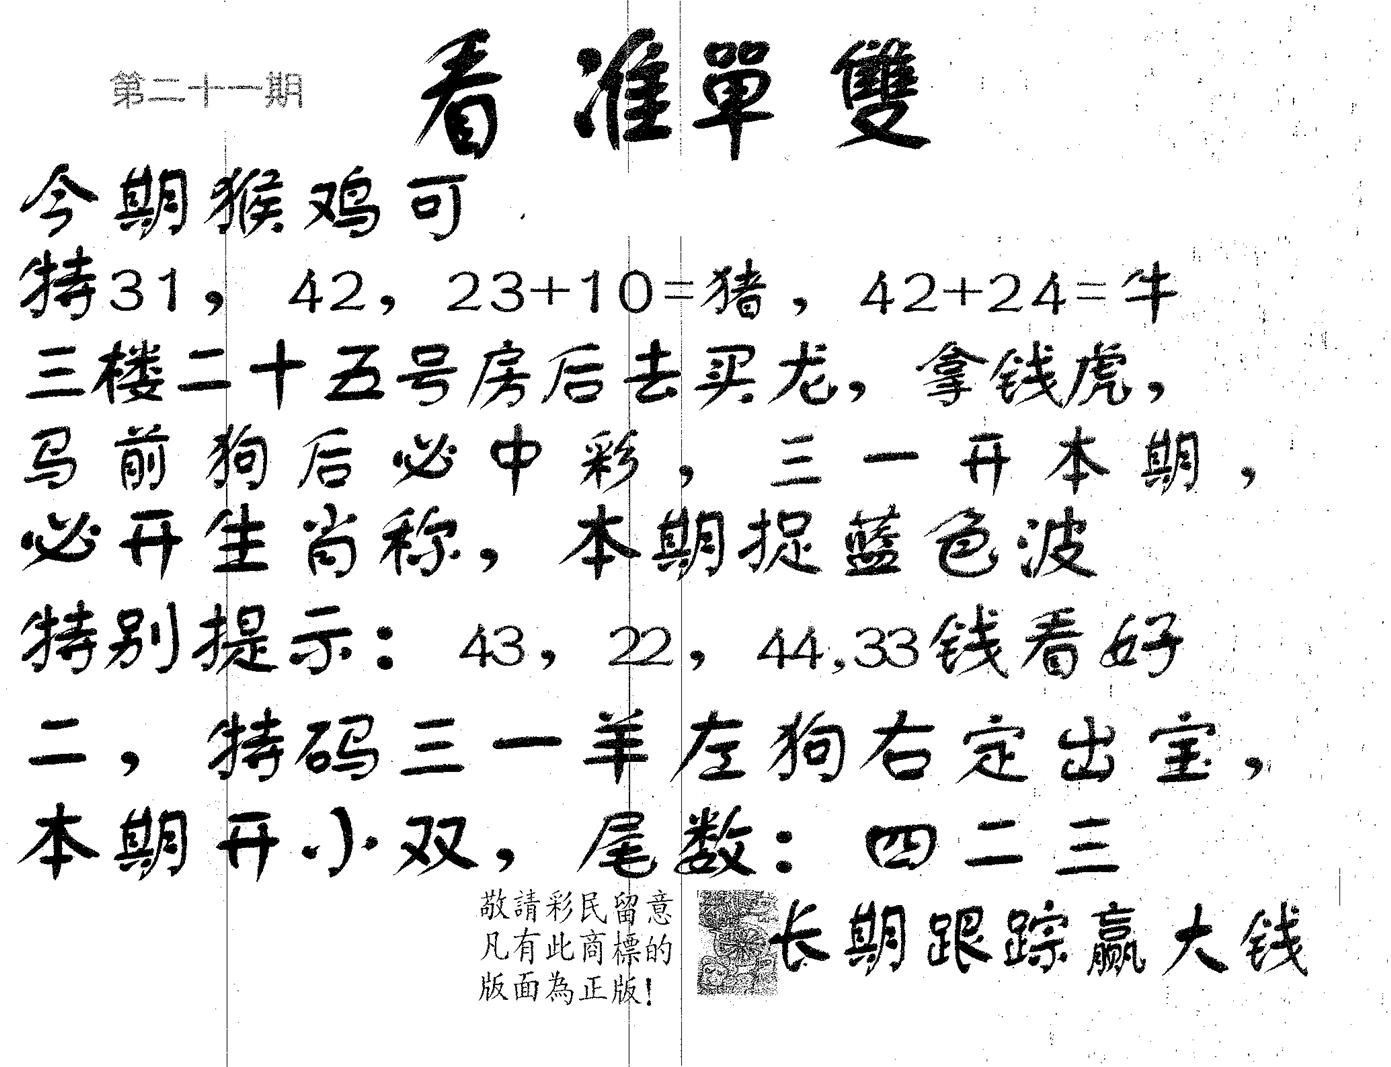 第二十一期
看准單雙
今期猴鸡可
特31，42，23+10=猪，42+24=牛
三楼二十五号房后去买龙，拿钱虎，
马前狗后必中彩，三一开本期，
必开生肖称，本期捉蓝色波
特别提示：43，22，44,33钱看好
二，特码三一羊左狗右定出宝，
本期开小双，尾数：四二三
敬請彩民留意
凡有此商標的
版面為正版!
长期跟踪赢大钱